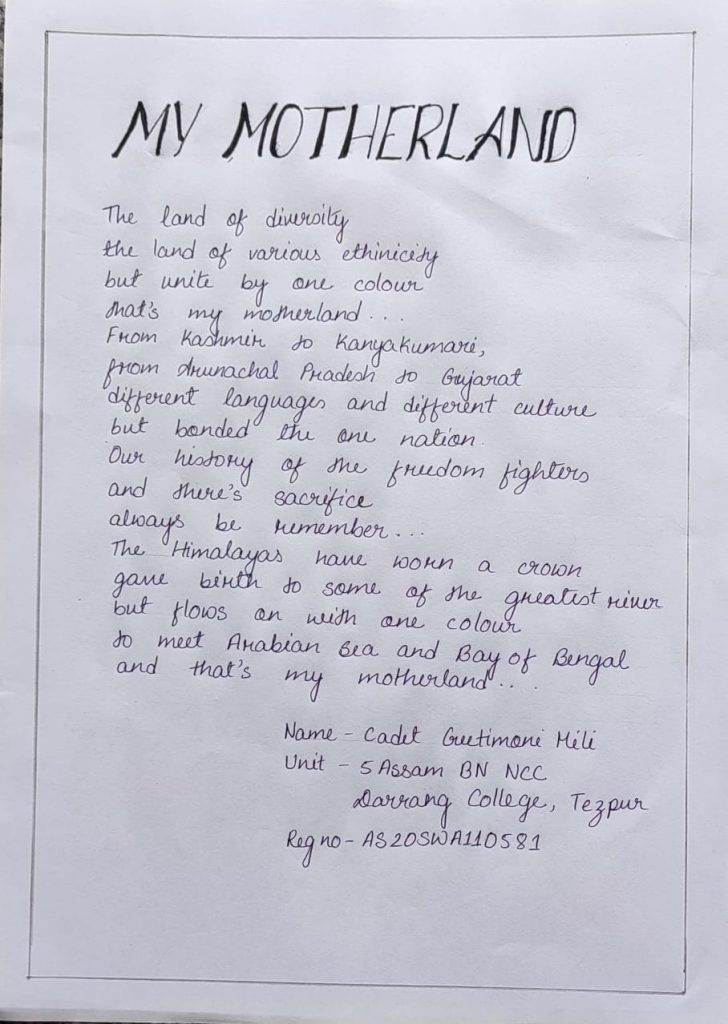 MY MOTHERLAND
The land of diversity
the land of various ethinicity
but unite by one colour
that's my motherland...
From Kashmir to Kanyakumari,
from Arunachal Pradesh to Gujarat
different languages and different culture
but bonded the one nation.
Our history of the freedom fighters
and there's sacrifice
always be remember...
The Himalayas have worn a crown
gave birth to some of the greatest river
but flows on with one colour
to meet Arabian Sea and Bay of Bengal
and that's my motherland....
Name - Cadet Geetimoni Mili
Unit - 5 Assam BN NCC
Darrang College, Tezpur
Reg no - AS20SWA110581